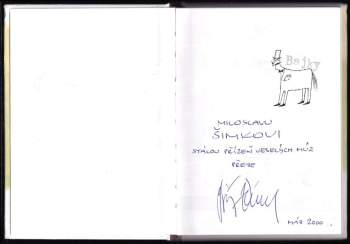 Bajky
MILOSLAVU
ŠIMKOVI
STÁLOU PŘÍZEŇ VESELÝCH MÚZ
PŘEJE
MÁJ 2000.